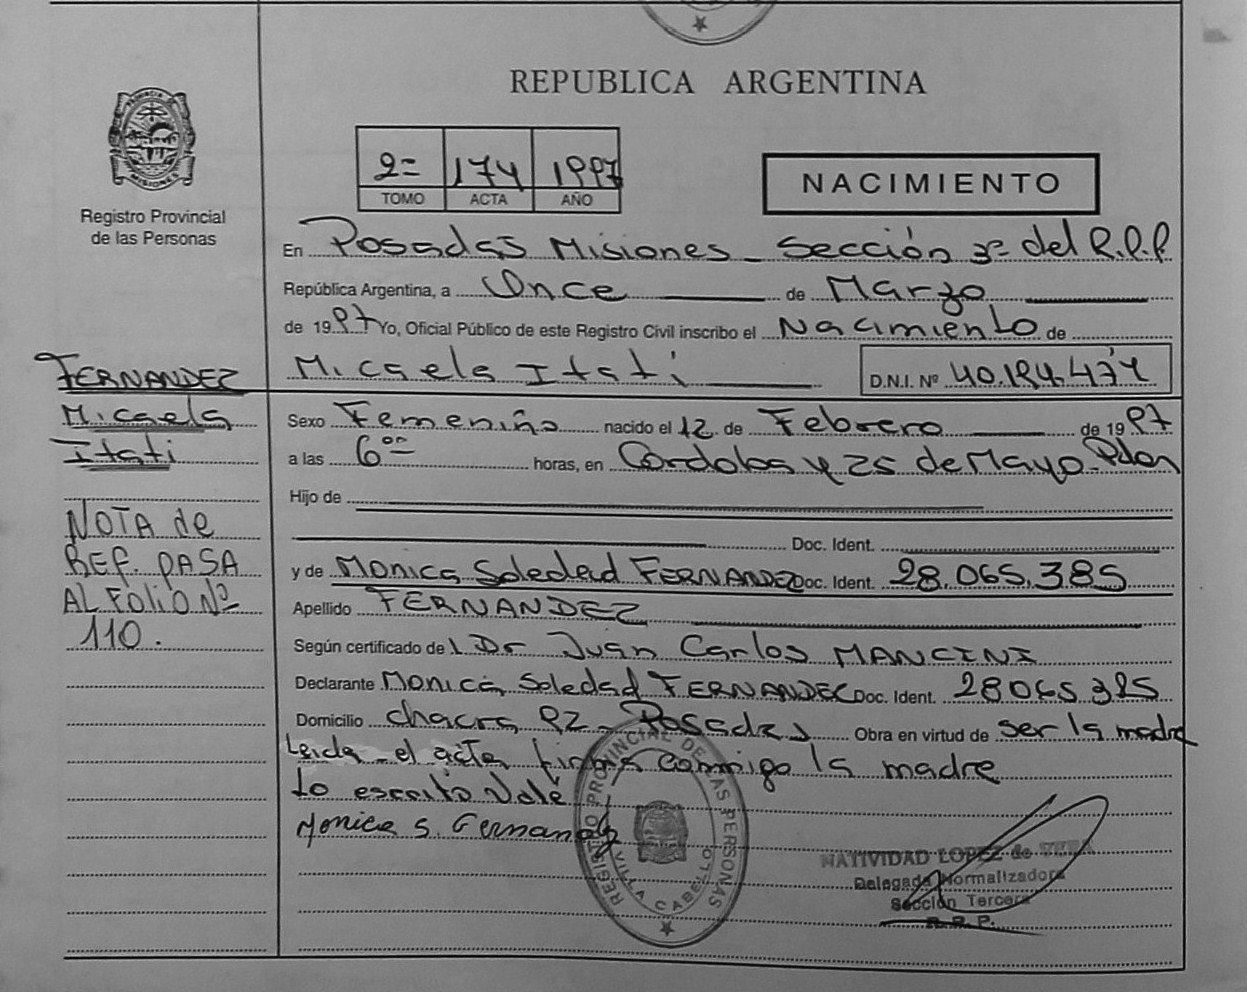 REPUBLICA ARGENTINA
2= 174 1997
TOMO ACTA AÑO
NACIMIENTO
Registro Provincial
de las Personas
En Posadas Misiones - Sección 3ª del R.P.P
República Argentina, a Once de Marzo
de 1997 Yo, Oficial Público de este Registro Civil inscribo el Nacimiento de
Micaela Itati D.N.I. Nº 40.194.474
FERNANDEZ
Micaela
Itati
NOTA de
REF. PASA
AL FOLIO Nº
110.
Sexo Femenino nacido el 12 de Febrero de 1997
a las 6 horas, en Cordoba y 25 de Mayo
Hijo de
Doc. Ident.
y de Monica Soledad FERNANDEZ Doc. Ident. 28.065.385
Apellido FERNANDEZ
Según certificado de l Dr Juan Carlos MANCINI
Declarante Monica Soledad FERNANDEZ Doc. Ident. 28065385
Domicilio chacra 92 - Posadas Obra en virtud de ser la madre
Leida el acta firma conmigo la madre
Lo escrito Vale
Monica S. Fernandez
REGISTRO PROVINCIAL DE LAS PERSONAS
VILLA CABELLO
NATIVIDAD LOPEZ de
Delegada Normalizadora
Sección Tercera
R.P.P.